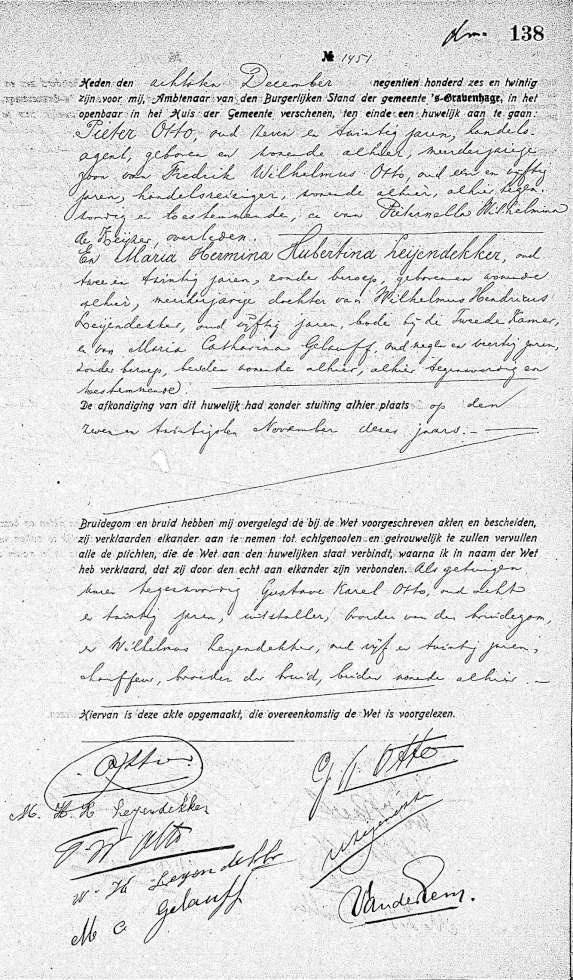 138
№ 1451
Heden den achtsten December negentien honderd zes en twintig
zijn voor mij, Ambtenaar van den Burgerlijken Stand der gemeente 's-Gravenhage, in het
openbaar in het Huis der Gemeente verschenen, ten einde een huwelijk aan te gaan:
Pieter Otto, oud zeven en twintig jaren, handels-
agent, geboren en wonende alhier, meerderjarige
zoon van Frederik Wilhelmus Otto, oud een en vijftig
jaren, handelsreiziger, wonende alhier, alhier tegen-
woordig en toestemmende, en van Pieternella Wilhelmina
de Keijzer, overleden.
En Maria Hermina Hubertina Leijendekker, oud
twee en twintig jaren, zonder beroep, geboren en wonende
alhier, meerderjarige dochter van Wilhelmus Hendricus
Leyendekker, oud vijftig jaren, bode bij de Tweede Kamer,
en van Maria Catharina Gelauff, oud negen en veertig jaren,
zonder beroep, beiden wonende alhier, alhier tegenwoordig en
toestemmende.
De afkondiging van dit huwelijk had zonder stuiting alhier plaats op den
zeven en twintigsten November dezes jaars.
Bruidegom en bruid hebben mij overgelegd de bij de Wet voorgeschreven akten en bescheiden,
zij verklaarden elkander aan te nemen tot echtgenooten en getrouwelijk te zullen vervullen
alle de plichten, die de Wet aan den huwelijken staat verbindt, waarna ik in naam der Wet
heb verklaard, dat zij door den echt aan elkander zijn verbonden. Als getuigen
waren tegenwoordig Gustave Karel Otto, oud acht
en twintig jaren, installer, broeder van den bruidegom,
en Wilhelmus Leyendekker, oud vijf en twintig jaren,
chauffeur, broeder der bruid, beiden wonende alhier.
Hiervan is deze akte opgemaakt, die overeenkomstig de Wet is voorgelezen.
Otto
G K Otto
M. H. H Leyendekker
F. W Otto
W. H Leyendekker
M C Gelauff